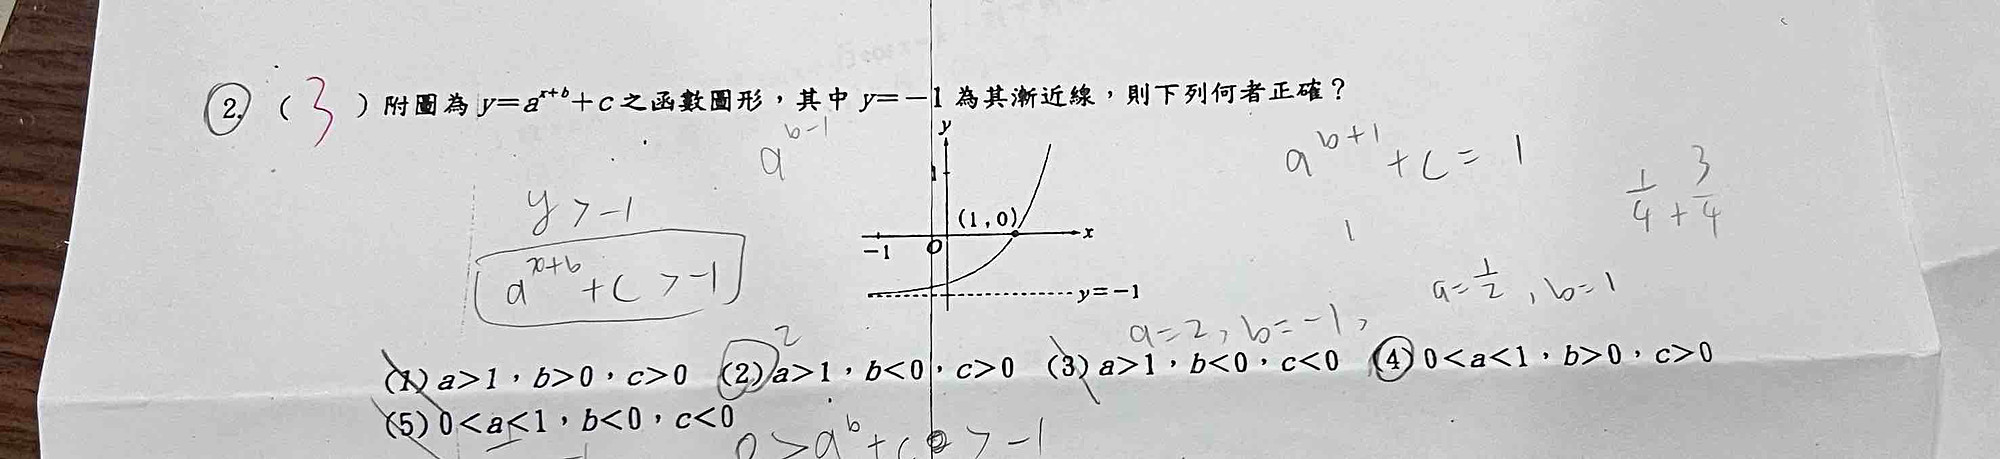 2. ( 3 ) 附圖為 y=a^{x+b}+c 之函數圖形，其中 y=-1 為其漸近線，則下列何者正確？
a^{b-1}
y
1
a^{b+1}+c=1
1/4+3/4
y>-1
(1,0)
-1 O x
1
a^{x+b}+c>-1
y=-1
a=1/2, b=1
2
a=2, b=-1,
(1) a>1，b>0，c>0 (2) a>1，b<0，c>0 (3) a>1，b<0，c<0 (4) 0<a<1，b>0，c>0
(5) 0<a<1，b<0，c<0
0>a^b+c>-1